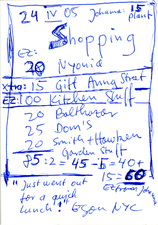 24 IV 05 Johanna: 15
Plant
Shopping
Ez:
20 Nyonid
Xtra: 15 Gift Anna Street
EZ: 100 Kitchen Stuff
20 Balthazar
25 Dom's
20 Smith + Hawken
Garden Stuff
85:2=45-5=40+
15=
Just went out
for a quick
lunch! Egon NYC